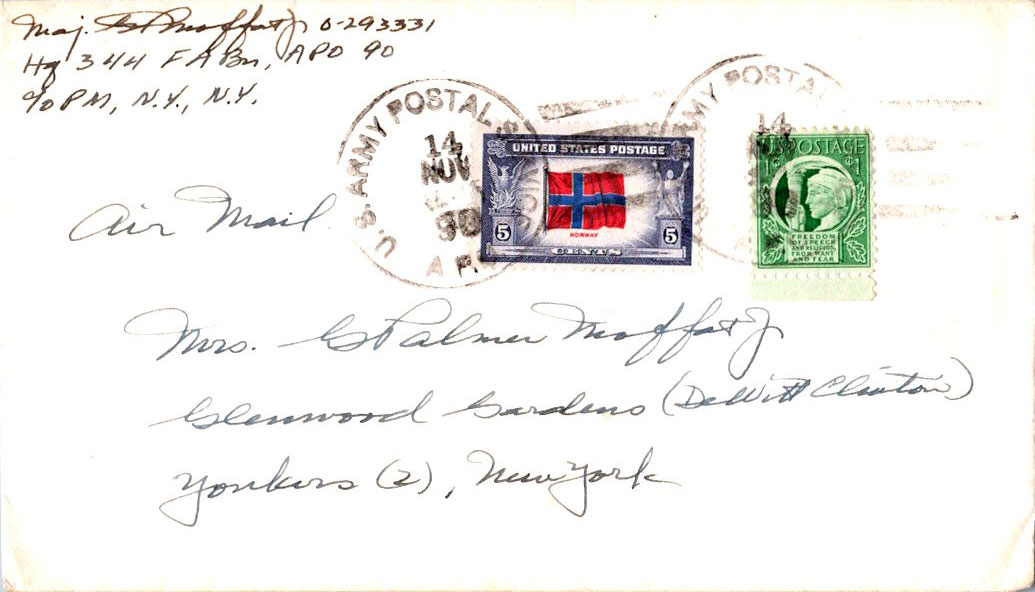 Maj. G P Moffat Jr 0-293331
Hq 344 F A Bn, APO 90
% PM, N.Y., N.Y.
U.S. ARMY POSTAL
14
NOV
90
A P
UNITED STATES POSTAGE
NORWAY
5 5
CENTS
ARMY POSTAL
14
U.S. POSTAGE
1¢ ¢1
FREEDOM
OF SPEECH
AND RELIGION,
FROM WANT
AND FEAR
Air Mail
Mrs. G Palmer Moffat Jr
Glenwood Gardens (DeWitt Clinton)
Yonkers (2), New York